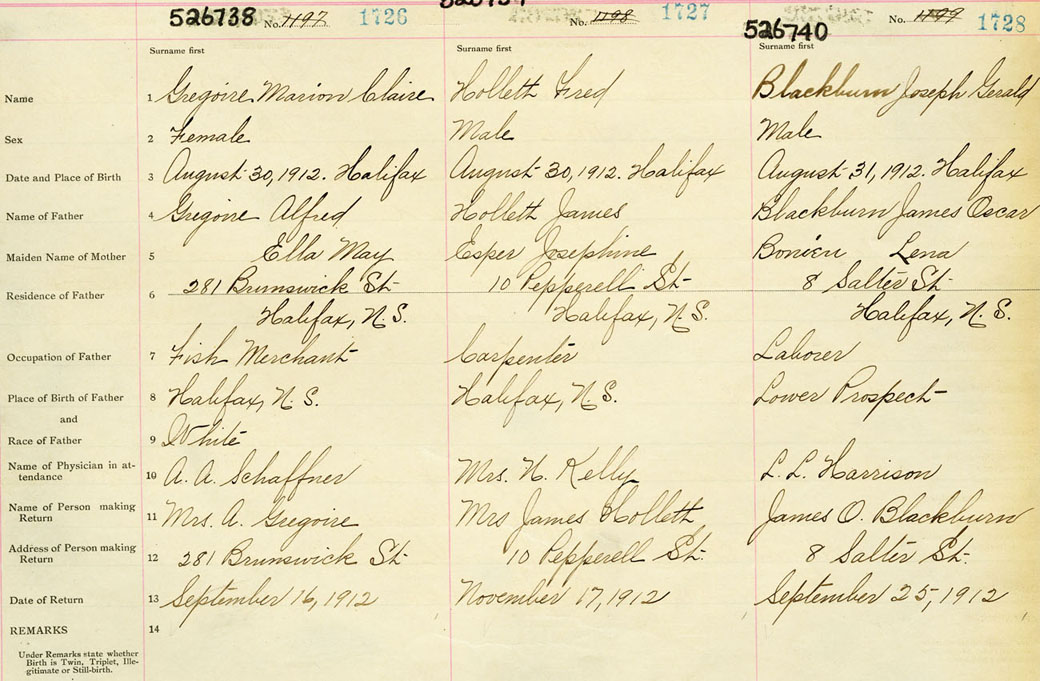 526738 No. 1197 1726 No. 1198 1727 526740 No. 1199 1728
Surname first Surname first Surname first
Name 1 Gregoire Marion Claire Hollett Fred Blackburn Joseph Gerald
Sex 2 Female Male Male
Date and Place of Birth 3 August 30, 1912. Halifax August 30, 1912. Halifax August 31, 1912. Halifax
Name of Father 4 Gregoire Alfred Hollett James Blackburn James Oscar
Maiden Name of Mother 5 Ella May Esper Josephine Lena
Residence of Father 6 281 Brunswick St. 10 Pepperell St. 8 Salter St.
Halifax, N.S. Halifax, N.S. Halifax, N.S.
Occupation of Father 7 Fish Merchant Carpenter Laborer
Place of Birth of Father 8 Halifax, N.S. Halifax, N.S. Lower Prospect
and
Race of Father 9 White
Name of Physician in at-
tendance 10 A. A. Schaffner Mrs. N. Kelly L. L. Harrison
Name of Person making
Return 11 Mrs. A. Gregoire Mrs James Hollett James O. Blackburn
Address of Person making
Return 12 281 Brunswick St. 10 Pepperell St. 8 Salter St.
Date of Return 13 September 16, 1912 November 17, 1912 September 25, 1912
REMARKS 14
Under Remarks state whether
Birth is Twin, Triplet, Ille-
gitimate or Still-birth.